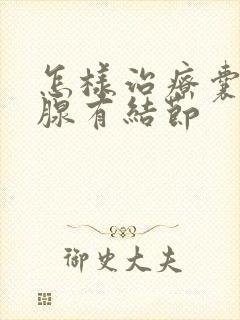 怎樣治療囊
腺有結節
御史大夫